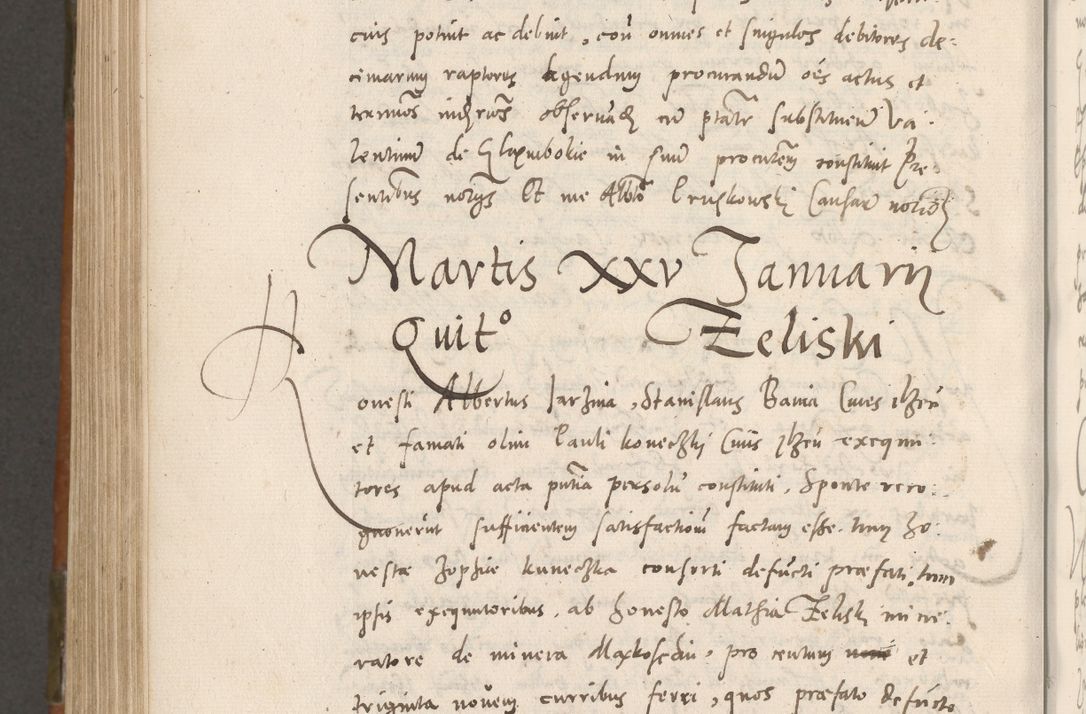 cuis potuit ac debuit, coñ omnes et singulos debitores de-
cimarum raptores agendum procurandũ oẽs actus et
terminos observad cũ ptate substituen Va-
lentinũ de in suũ procutem constituit Pre-
sentibus notys Et me Albto Pruskowski Causar notio
Martis xxv Januarii
Quit° Zeliski
Honesti Albertus Jarzina, Stanislaus Bania Cives ilzeñ
et famati olim Pauli koneczkj Civis Jlzeñ exequu-
tores apud acta pñtia persolr constituti, Sponte reco-
gnoverũt sufficientem satisfactionẽ factam esse tum Ho-
nestæ Zophiæ kuneczka consorti defũcti præfati, tum
ipsis exequutoribus, ab honesto Mathia Zelisk mine-
ratore de minera pro centum et
triginta novem curribus ferri, quos præfato defũcto